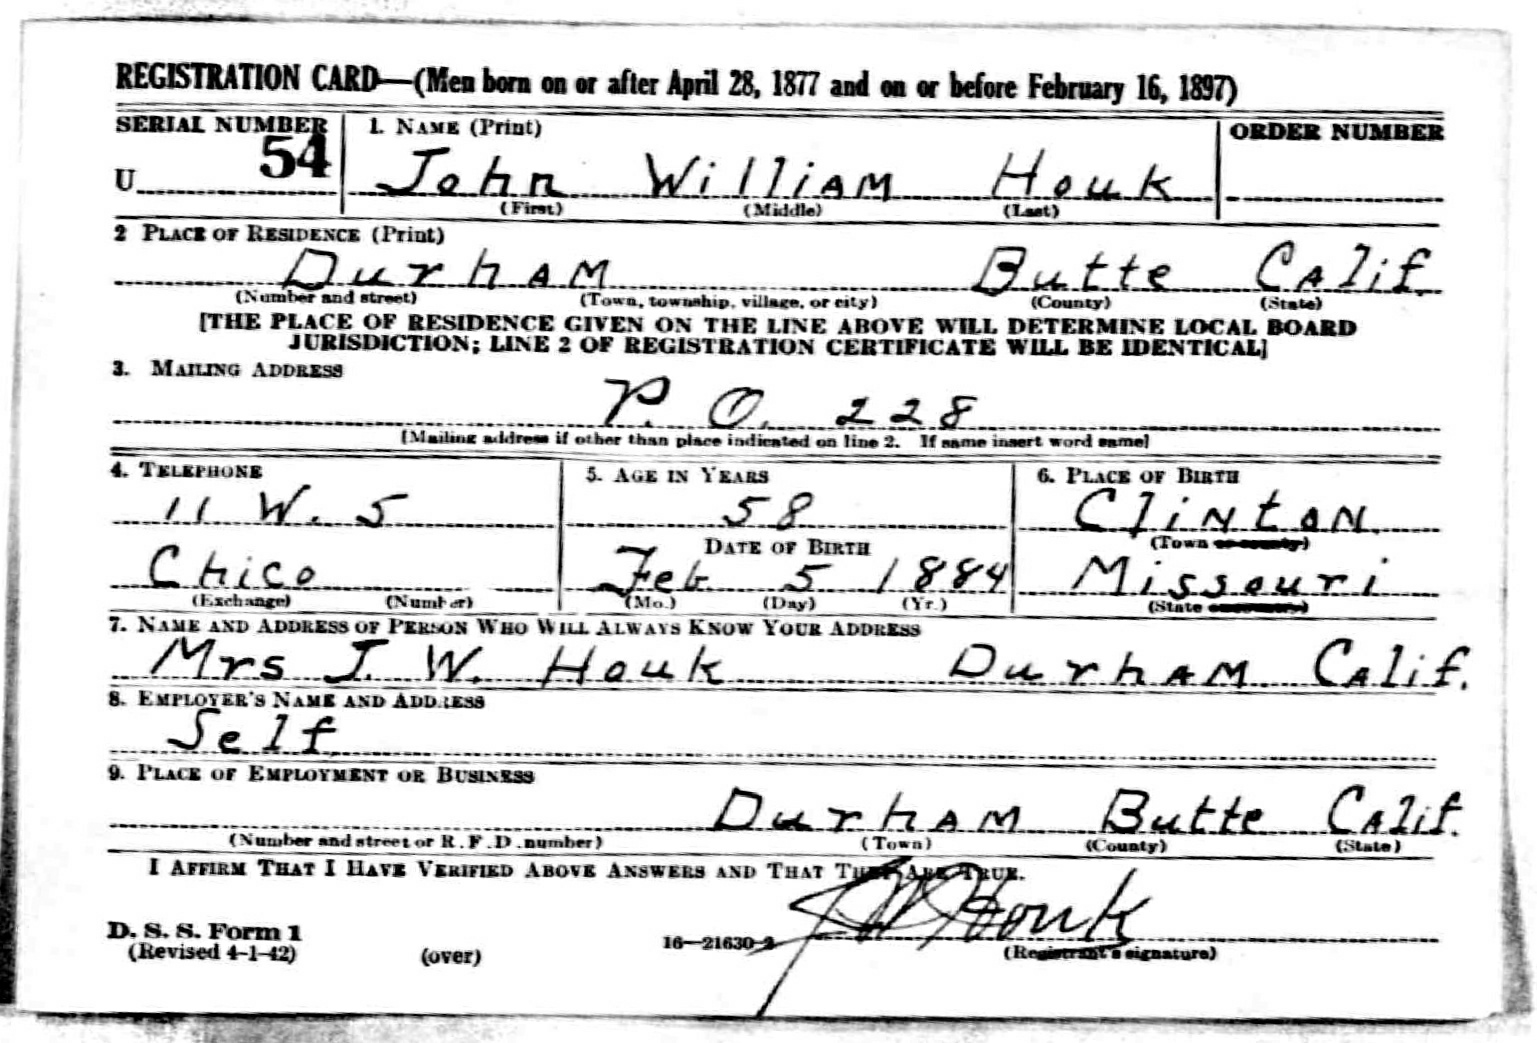 REGISTRATION CARD—(Men born on or after April 28, 1877 and on or before February 16, 1897)
SERIAL NUMBER 1. NAME (Print) ORDER NUMBER
U 54 John William Houk
(First) (Middle) (Last)
2 PLACE OF RESIDENCE (Print)
Durham Butte Calif.
(Number and street) (Town, township, village, or city) (County) (State)
[THE PLACE OF RESIDENCE GIVEN ON THE LINE ABOVE WILL DETERMINE LOCAL BOARD
JURISDICTION; LINE 2 OF REGISTRATION CERTIFICATE WILL BE IDENTICAL]
3. MAILING ADDRESS
P. O. 228
[Mailing address if other than place indicated on line 2. If same insert word same]
4. TELEPHONE 5. AGE IN YEARS 6. PLACE OF BIRTH
11 W. 5 58 Clinton
DATE OF BIRTH (Town or county)
Chico Feb 5 1884 Missouri
(Exchange) (Number) (Mo.) (Day) (Yr.) (State or country)
7. NAME AND ADDRESS OF PERSON WHO WILL ALWAYS KNOW YOUR ADDRESS
Mrs J. W. Houk Durham Calif.
8. EMPLOYER'S NAME AND ADDRESS
Self
9. PLACE OF EMPLOYMENT OR BUSINESS
Durham Butte Calif.
(Number and street or R. F. D. number) (Town) (County) (State)
I AFFIRM THAT I HAVE VERIFIED ABOVE ANSWERS AND THAT THEY ARE TRUE.
J W Houk
D. S. S. Form 1
(Revised 4-1-42) (over) 16—21630-2 (Registrant's signature)